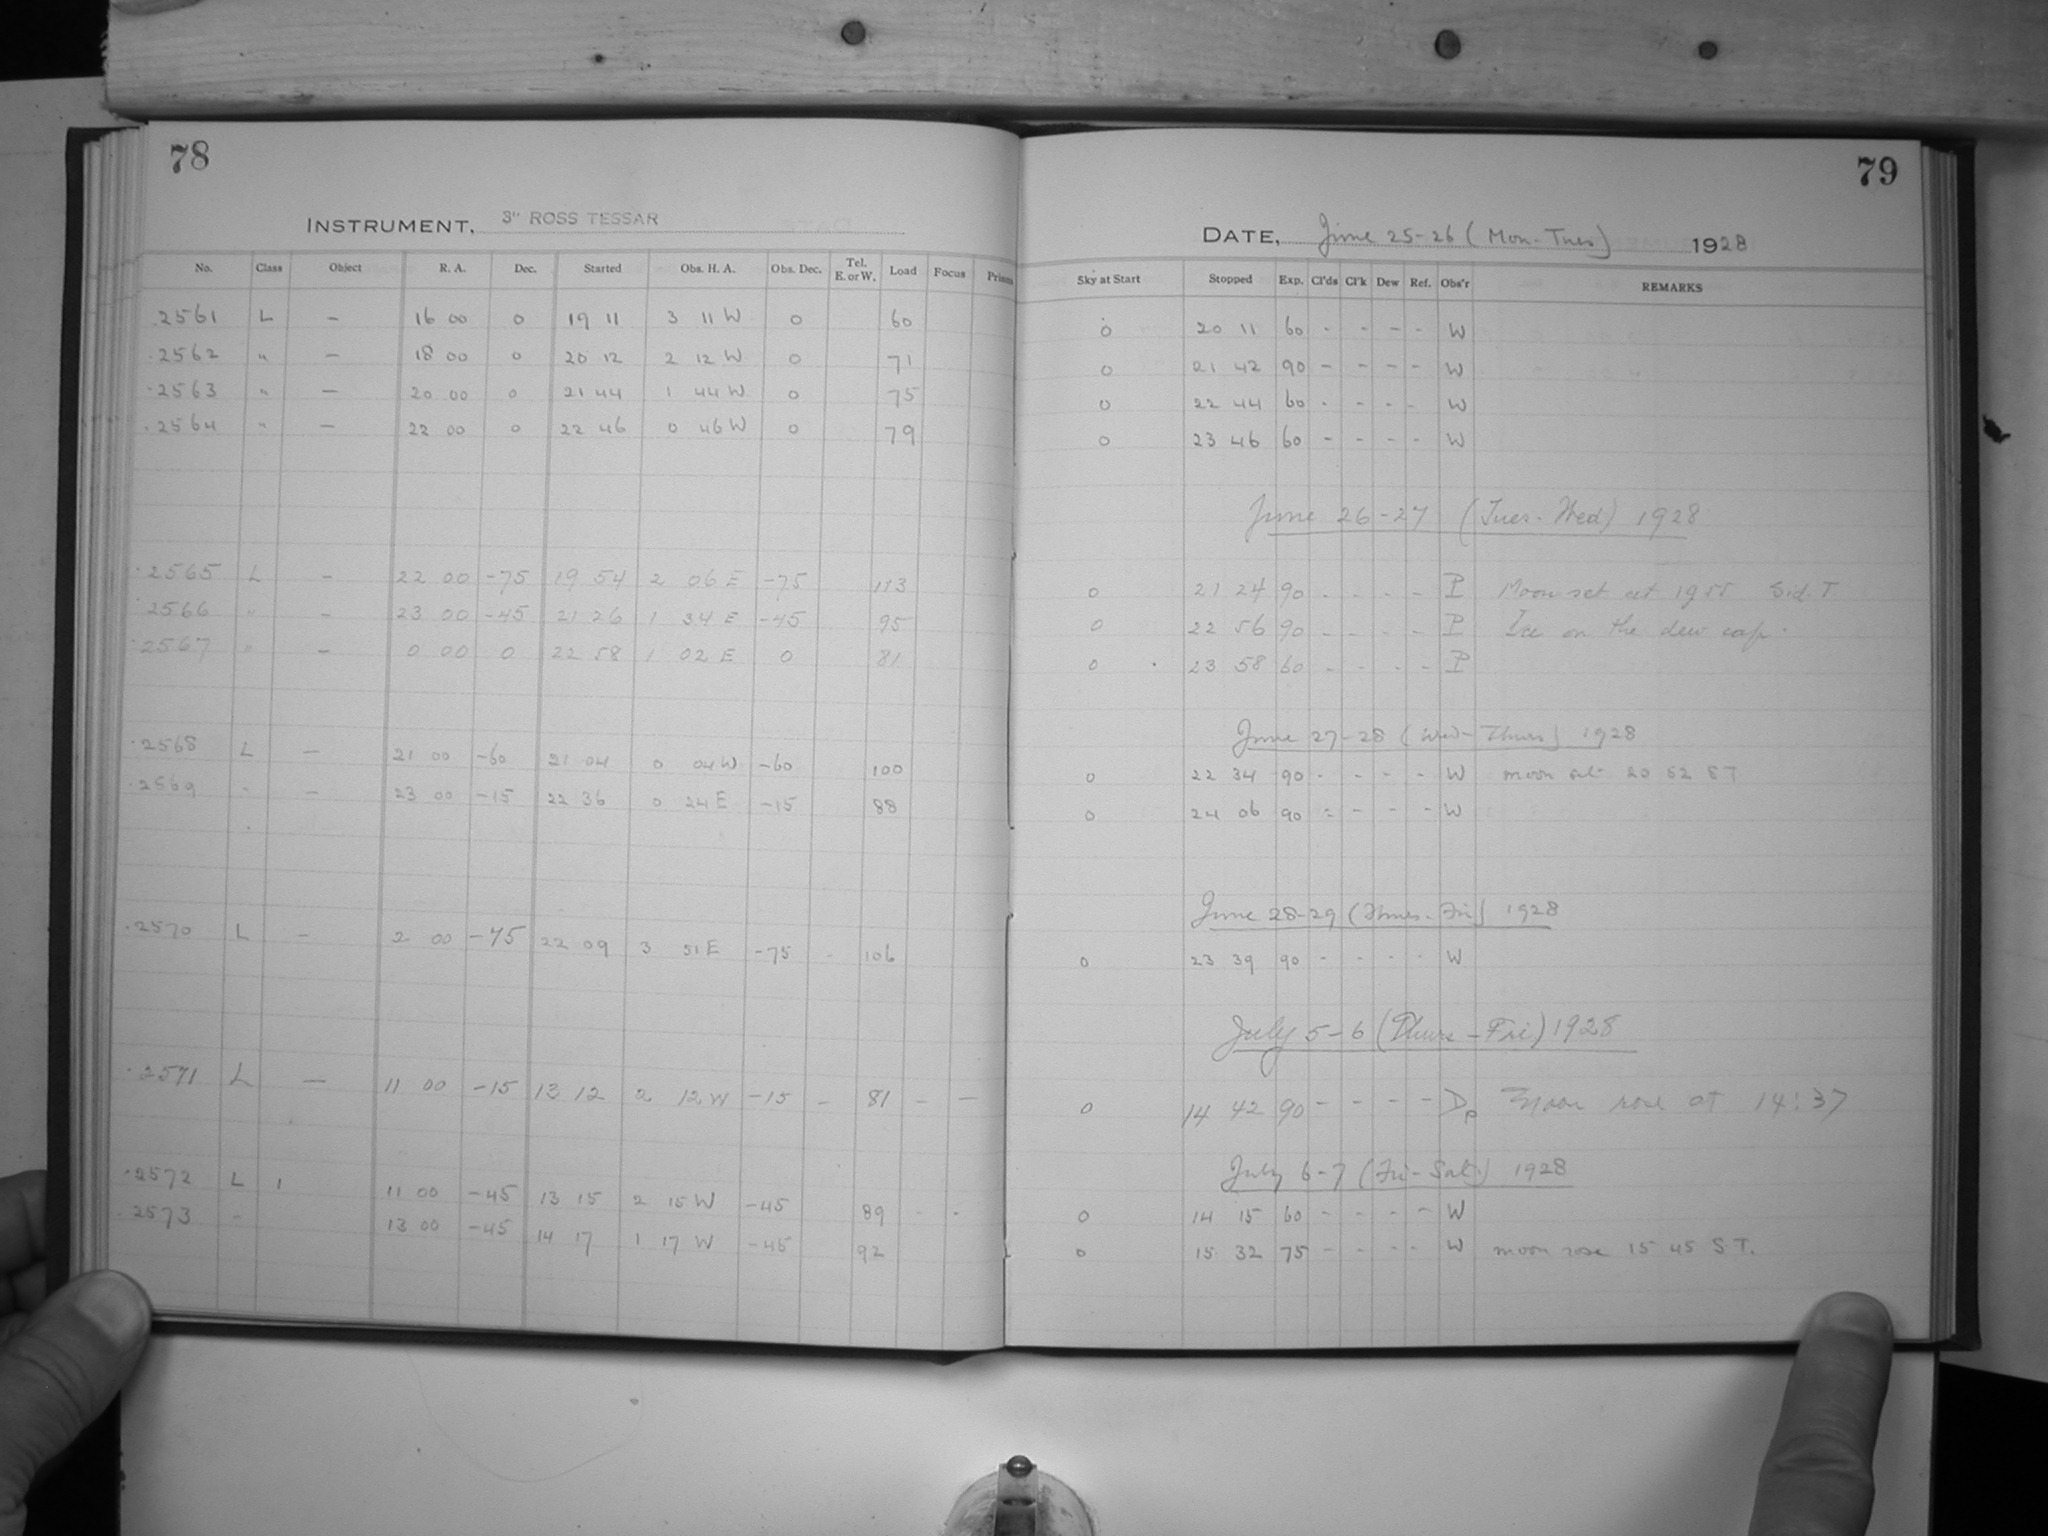 78
INSTRUMENT, 3" ROSS TESSAR
No. Class Object R. A. Dec. Started Obs. H. A. Obs. Dec. Tel. E. or W. Load Focus
.2561 L – 16 00 0 19 11 3 11 W 0 60
.2562 " – 18 00 0 20 12 2 12 W 0 71
.2563 " – 20 00 0 21 44 1 44 W 0 75
.2564 " – 22 00 0 22 46 0 46 W 0 79
.2565 L – 22 00 -75 19 54 2 06 E -75 113
.2566 " – 23 00 -45 21 26 1 34 E -45 95
.2567 " – 0 00 0 22 58 1 02 E 0 81
.2568 L – 21 00 -60 21 04 0 04 W -60 100
.2569 - – 23 00 -15 22 36 0 24 E -15 88
.2570 L – 2 00 -75 22 09 3 51 E -75 - 106
.2571 L – 11 00 -15 13 12 2 12 W -15 – 81 – –
.2572 L 1 11 00 -45 13 15 2 15 W -45 89 - -
.2573 - 13 00 -45 14 17 1 17 W -45 92
79
DATE, June 25-26 (Mon-Tues) 1928
Sky at Start Stopped Exp. Cl'ds Cl'k Dew Ref. Obs'r REMARKS
0 20 11 60 - - - - W
0 21 42 90 - - - - W
0 22 44 60 - - - - W
0 23 46 60 - - - - W
June 26-27 (Tues-Wed) 1928
0 21 24 90 - - - - P Moon set at 19 55 Sid. T.
0 22 56 90 - - - - P Ice on the dew cap.
0 23 58 60 - - - - P
June 27-28 (Wed-Thurs) 1928
0 22 34 90 - - - - W moon set 20 52 ST
0 24 06 90 - - - - W
June 28-29 (Thurs-Fri) 1928
0 23 39 90 - - - - W
July 5-6 (Thurs-Fri) 1928
0 14 42 90 - - - - Dp Moon rose at 14:37
July 6-7 (Fri-Sat) 1928
0 14 15 60 - - - - W
0 15 32 75 - - - - W moon rose 15 45 S T.